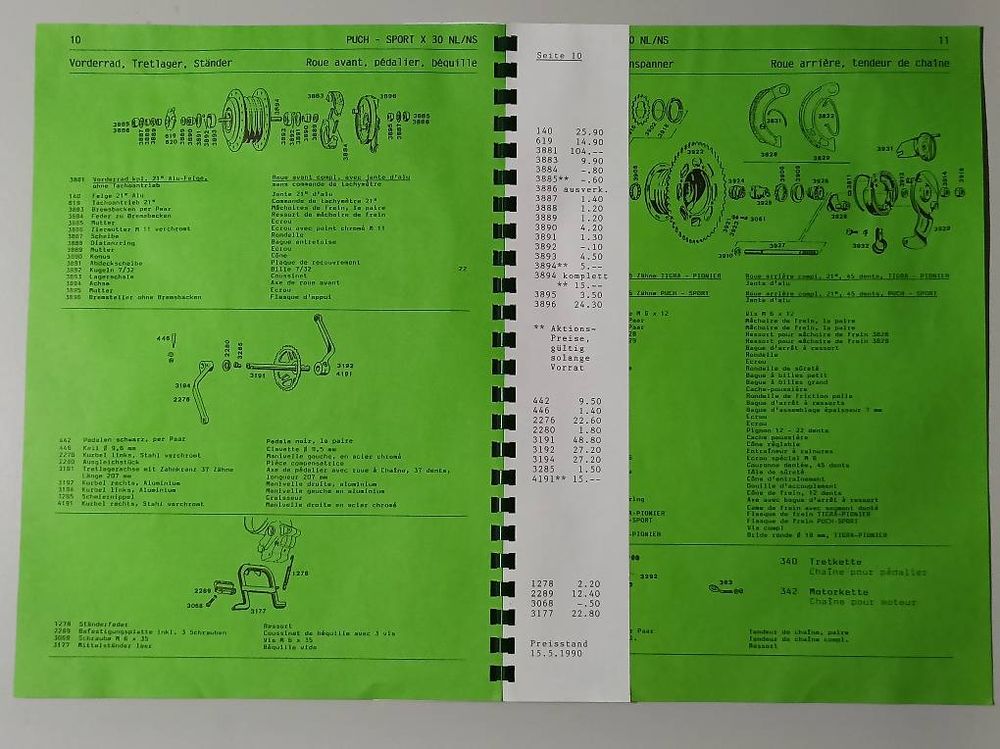 10 PUCH - SPORT X 30 NL/NS
Vorderrad, Tretlager, Ständer Roue avant, pédalier, béquille
3881 Vorderrad kpl. 21" Alu-Felge, Roue avant compl. avec jante d'alu
ohne Tachoantrieb sans commande de tachymètre
140 Felge 21" Alu Jante 21" d'alu
619 Tachoantrieb 21" Commande de tachymètre 21"
3883 Bremsbacken per Paar Mâchoires de frein, la paire
3884 Feder zu Bremsbacken Ressort de mâchoire de frein
3885 Mutter Ecrou
3886 Ziermutter M 11 verchromt Ecrou avec point chromé M 11
3887 Scheibe Rondelle
3888 Distanzring Bague entretoise
3889 Mutter Ecrou
3890 Konus Cône
3891 Abdeckscheibe Plaque de recouvrement
3892 Kugeln 7/32 Bille 7/32 22
3893 Lagerschale Coussinet
3894 Achse Axe de roue avant
3895 Mutter Ecrou
3896 Bremsteller ohne Bremsbacken Flasque d'appui
442 Pedalen schwarz, per Paar Pedale noir, la paire
446 Keil Ø 9,5 mm Clavette Ø 9,5 mm
2276 Kurbel links, Stahl verchromt Manivelle gauche, en acier chromé
2280 Ausgleichstück Pièce compensatrice
3191 Tretlagerachse mit Zahnkranz 37 Zähne Axe de pédalier avec roue à chaîne, 37 dents,
Länge 207 mm longueur 207 mm
3192 Kurbel rechts, Aluminium Manivelle droite, aluminium
3194 Kurbel links, Aluminium Manivelle gauche en aluminium
3285 Schmiernippel Graisseur
4191 Kurbel rechts, Stahl verchromt Manivelle droite en acier chromé
1278 Ständerfeder Ressort
2289 Befestigungsplatte inkl. 3 Schrauben Coussinet de béquille avec 3 vis
3068 Schraube M 6 x 35 Vis M 6 x 35
3177 Mittelständer leer Béquille vide
Seite 10
140 25.90
619 14.90
3881 104.--
3883 9.90
3884 -.80
3885** -.60
3886 ausverk.
3887 1.40
3888 1.20
3889 1.20
3890 4.20
3891 1.30
3892 -.10
3893 4.50
3894** 5.--
3894 komplett
** 15.--
3895 3.50
3896 24.30
** Aktions-
Preise,
gültig
solange
Vorrat
442 9.50
446 1.40
2276 22.60
2280 1.80
3191 48.80
3192 27.20
3194 27.20
3285 1.50
4191** 15.--
1278 2.20
2289 12.40
3068 -.50
3177 22.80
Preisstand
15.5.1990
0 NL/NS 11
nspanner Roue arrière, tendeur de chaîne
Zähne TIGRA - PIONIER Roue arrière compl. 21", 45 dents, TIGRA - PIONIER
Jante d'alu
Zähne PUCH - SPORT Roue arrière compl. 21", 45 dents, PUCH - SPORT
Jante d'alu
M 6 x 12 Vis M 6 x 12
Paar Mâchoire de frein, la paire
Paar Mâchoire de frein, la paire
28 Ressort pour mâchoire de frein 3828
29 Ressort pour mâchoire de frein 3829
Bague d'arrêt à ressort
Rondelle
Ecrou
Rondelle de sûreté
Bague à billes petit
Bague à billes grand
Cache-poussière
Rondelle de friction polie
Bague d'arrêt à ressorts
Bague d'assemblage épaisseur 1 mm
Ecrou
Ecrou
Pignon 12 - 22 dents
Cache poussière
Cône réglable
Entraîneur à rainures
Ecrou spécial M 8
Couronne dentée, 45 dents
Tôle de sûreté
Cône d'entraînement
Douille d'accouplement
Cône de frein, 12 dents
ring Axe avec bague d'arrêt à ressort
Came de frein avec segment denté
A-PIONIER Flasque de frein TIGRA-PIONIER
-SPORT Flasque de frein PUCH-SPORT
Vis compl
-PIONIER Bride ronde Ø 18 mm, TIGRA-PIONIER
3292 383
340 Tretkette
Chaîne pour pédalier
342 Motorkette
Chaîne pour moteur
Paar Tendeur de chaîne, paire
Tendeur de chaîne compl.
Ressort